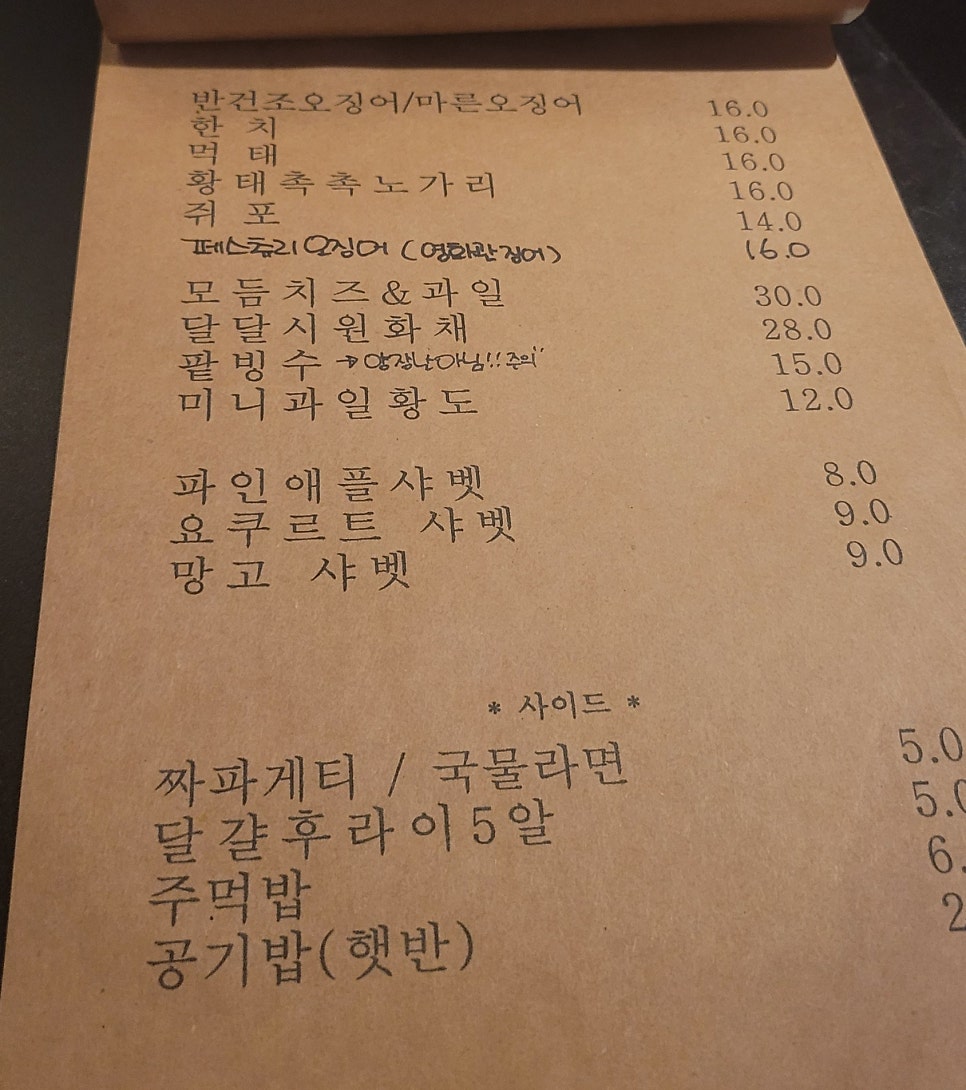 반건조오징어/마른오징어 16.0
한 치 16.0
먹 태 16.0
황태촉촉노가리 16.0
쥐 포 14.0
페스츄리오징어 (영화관징어) 16.0
모듬치즈&과일 30.0
달달시원화채 28.0
팥빙수 → 양장난아님!! 주의" 15.0
미니과일황도 12.0
파인애플샤벳 8.0
요쿠르트 샤벳 9.0
망고 샤벳 9.0
* 사이드 *
짜파게티 / 국물라면 5.0
달걀후라이5알 5.0
주먹밥 6.
공기밥(햇반) 2